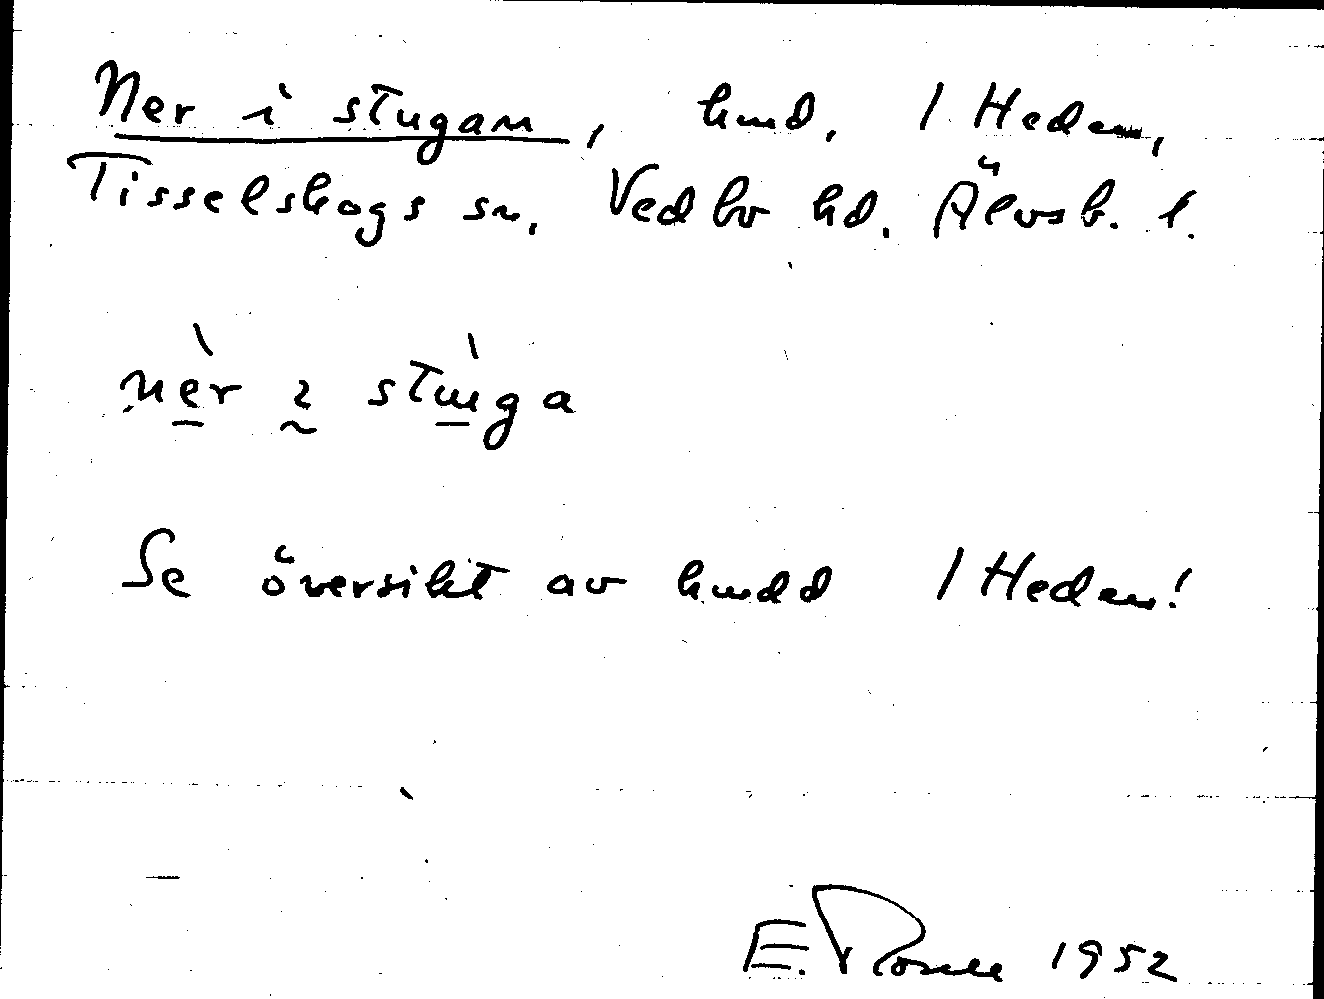 Ner i stugan, hmd, 1 Heden,
Tisselskogs sn, Vedbo hd. Älvsb. l.
nèr ı stùga
Se översikt av hmdd 1 Heden!
E. 1952